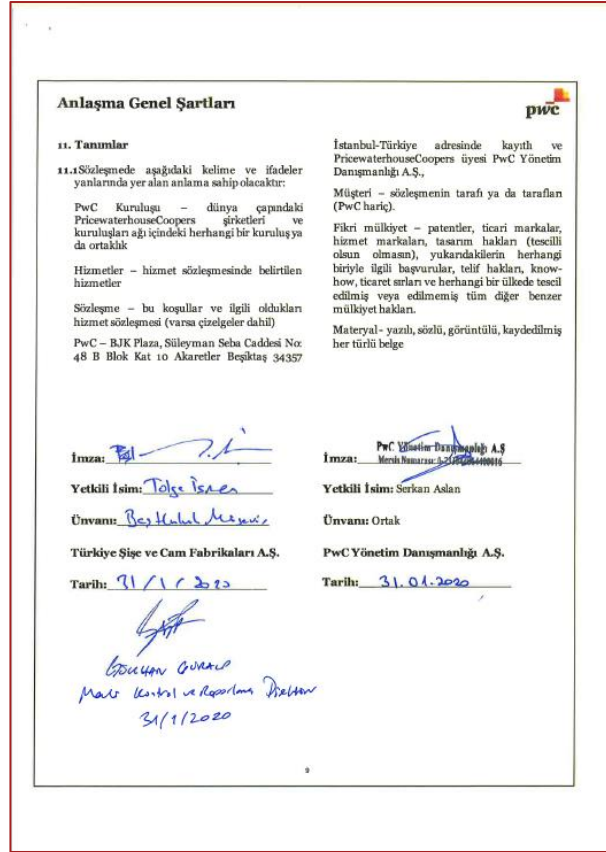 Anlaşma Genel Şartları
pwc
11. Tanımlar
11.1 Sözleşmede aşağıdaki kelime ve ifadeler
yanlarında yer alan anlama sahip olacaktır:
PwC Kuruluşu – dünya çapındaki
PricewaterhouseCoopers şirketleri ve
kuruluşları ağı içindeki herhangi bir kuruluş ya
da ortaklık
Hizmetler – hizmet sözleşmesinde belirtilen
hizmetler
Sözleşme – bu koşullar ve ilgili oldukları
hizmet sözleşmesi (varsa çizelgeler dahil)
PwC – BJK Plaza, Süleyman Seba Caddesi No:
48 B Blok Kat 10 Akaretler Beşiktaş 34357
İstanbul-Türkiye adresinde kayıtlı ve
PricewaterhouseCoopers üyesi PwC Yönetim
Danışmanlığı A.Ş.,
Müşteri – sözleşmenin tarafı ya da tarafları
(PwC hariç).
Fikri mülkiyet – patentler, ticari markalar,
hizmet markaları, tasarım hakları (tescilli
olsun olmasın), yukarıdakilerin herhangi
biriyle ilgili başvurular, telif hakları, know-
how, ticaret sırları ve herhangi bir ülkede tescil
edilmiş veya edilmemiş tüm diğer benzer
mülkiyet hakları.
Materyal - yazılı, sözlü, görüntülü, kaydedilmiş
her türlü belge
İmza:
Yetkili İsim: Tolga
Ünvanı:
Türkiye Şişe ve Cam Fabrikaları A.Ş.
Tarih: 31/1/2020
PwC Yönetim Danışmanlığı A.Ş
Mersis Numarası:
İmza:
Yetkili İsim: Serkan Aslan
Ünvanı: Ortak
PwC Yönetim Danışmanlığı A.Ş.
Tarih: 31.01.2020
Kontrol ve Raporlama
31/1/2020
9